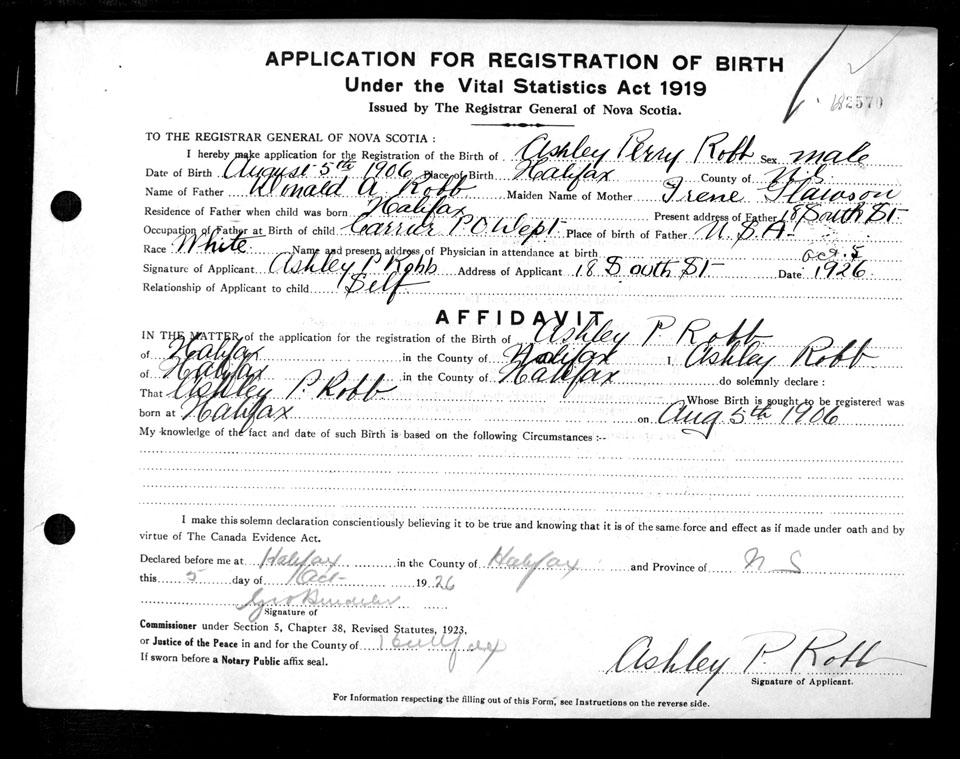 APPLICATION FOR REGISTRATION OF BIRTH
Under the Vital Statistics Act 1919
Issued by The Registrar General of Nova Scotia.
62570
TO THE REGISTRAR GENERAL OF NOVA SCOTIA :
I hereby make application for the Registration of the Birth of Ashley Perry Robb Sex male
Date of Birth August 5th 1906 Place of Birth Halifax County of N.S.
Name of Father Donald A. Robb Maiden Name of Mother Irene
Residence of Father when child was born Halifax Present address of Father 18 South St
Occupation of Father at Birth of child Carrier P O Dept Place of birth of Father U.S.A.
Race White Name and present address of Physician in attendance at birth
Signature of Applicant Ashley P. Robb Address of Applicant 18 South St Date Oct. 5 1926
Relationship of Applicant to child Self
AFFIDAVIT
IN THE MATTER of the application for the registration of the Birth of Ashley P. Robb
of Halifax in the County of Halifax I, Ashley Robb
of Halifax in the County of Halifax do solemnly declare :
That Ashley P. Robb Whose Birth is sought to be registered was
born at Halifax on Aug 5th 1906
My knowledge of the fact and date of such Birth is based on the following Circumstances :--
I make this solemn declaration conscientiously believing it to be true and knowing that it is of the same force and effect as if made under oath and by
virtue of The Canada Evidence Act.
Declared before me at Halifax in the County of Halifax and Province of N S
this 5 day of Oct 1926
Signature of
Commissioner under Section 5, Chapter 38, Revised Statutes, 1923,
or Justice of the Peace in and for the County of Halifax
If sworn before a Notary Public affix seal.
Ashley P. Robb
Signature of Applicant.
For Information respecting the filling out of this Form, see Instructions on the reverse side.